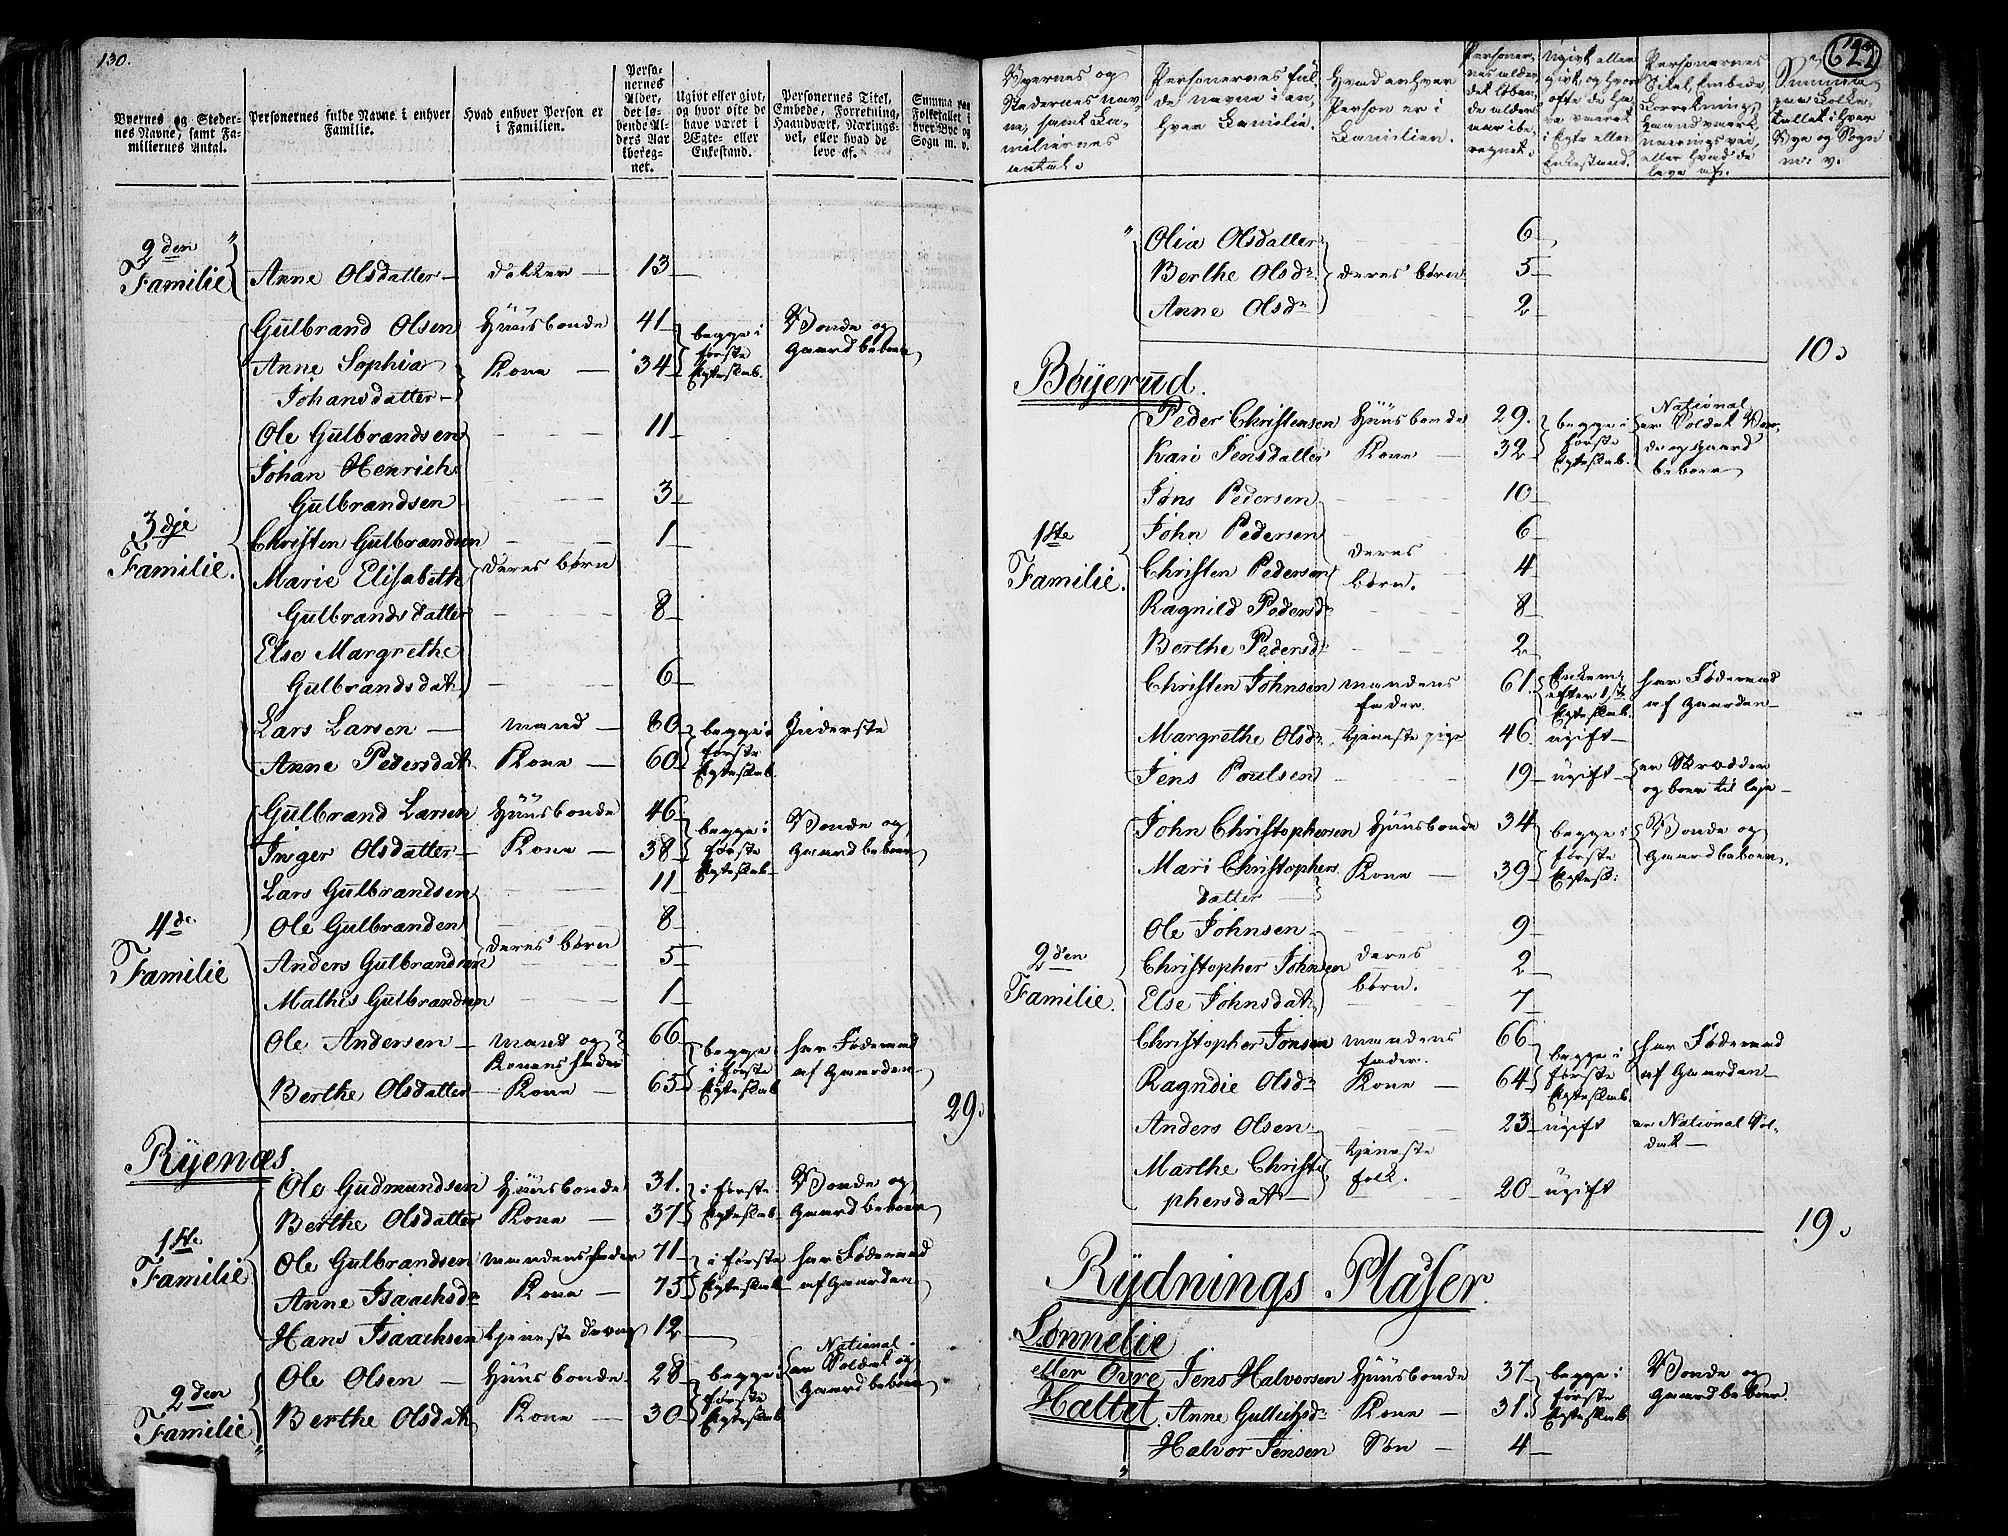 130.
Byernes og Stedernes Navne, samt Familiernes Antal.
Personernes fulde Navne i enhver Familie.
Hvad enhver Person er i Familien.
Personernes Alder, det løbende Alders Aar iberegnet.
Ugivt eller givt, og hvor ofte de have været i Ægte- eller Enkestand.
Personernes Titel, Embede, Forretning, Haandværk, Næringsvei, eller hvad de leve af.
Summa paa Folketallet i hver Bye og Sogn m. v.
2den Familie
Anne Olsdatter — datter — 13
3dje Familie.
Gulbrand Olsen Huusbonde 41 begge i første Egteskab. Bonde og Gaardbeboer
Anne Sophia Johansdatter — Kone — 34
Ole Gulbrandsen 11
Johan Henrich Gulbrandsen 3
Christen Gulbrandsen 1
deres børn
Marie Elisabeth Gulbrandsdatter 8
Else Margrethe Gulbrandsdat 6
Lars Larsen — mand — 60 begge i første Egteskab Inderste
Anne Pedersdat Kone — 60
4de Familie
Gulbrand Larsen Huusbonde 46 begge i første Egteskab Bonde og Gaardbeboer
Inger Olsdatter — Kone — 38
Lars Gulbrandsen 11
Ole Gulbranden 8
deres børn
Anders Gulbrandsen 5
Mathis Gulbrandsen 1
Ole Andersen — mand og Konens fader 66 begge i første Egteskab har Føderaad af Gaarden
Berthe Olsdatter — Kone — 65
29
Ryenæs
1ste Familie
Ole Gudmundsen Huusbonde 31. i første Egteskab Bonde og Gaardbeboer
Berthe Olsdatter Kone — 37
Ole Gulbrandsen mandens fader 71 i første Egteskab har Føderaad af Gaarden
Anne Isaachsdr Kone — 75
Hans Isaachsen tjeneste dreng 12
2den Familie
Ole Olsen — Huusbonde 28 begge i første Egteskab er National Soldat og Gaardbeboer
Berthe Olsdat Kone — 30
622
Byernes og Stedernes navne, samt Familiernes antal.
Personernes fulde navne i enhver Familie.
Hvad enhver Person er i Familien.
Personernes alder det løbende alders aar iberegnet.
Ugivt eller givt og hvor ofte de have været i Egte eller Enkestand.
Personernes Titel, Embede, Forretning, Haandværk, næringsvei, eller hvad de leve af.
Summa paa Folketallet i hver Bye og Sogn m. v.
Olia Olsdatter 6
Berthe Olsdr deres børn 5
Anne Olsdr 2
10
Bøyerud.
1ste Familie.
Peder Christensen Huusbonde 29. begge i første Egteskab. er National Soldat Bonde og Gaard beboer
Kari Jensdatter Kone — 32
Jøns Pedersen 10
John Pedersen 6
deres børn.
Christen Pedersen 4
Ragnild Pedersdr 8
Berthe Pedersdr 2
Christen Johnsen mandens fader. 61. Enkem: efter 1ste Egteskab. har Føderaad af Gaarden
Margrethe Olsdr tjeneste pige 46 ugift
Jens Poulsen 19 ugift er Skrædder og boer til leje
2den Familie.
John Christophersen Huusbonde 34 begge i første Egtesk: Bonde og Gaardbeboer.
Mari Christophersdatter Kone — 39
Ole Johnsen 9
deres børn.
Christopher Johnsen 2
Else Johnsdat 7
Christopher Jonsen mandens fader. 66 begge i første Egteskab. har Føderaad af Gaarden
Ragndie Olsdr Kone — 64
Anders Olsen 23 ugift er National Soldat
tjeneste folk.
Marthe Christophersdat 20 ugift
19
Rydnings Plaser.
Lønnelie eller Øvre Hattet.
Jens Halvorsen Huusbonde 37 begge i første Egteskab Bonde og Gaardbeboer.
Anne Gullichsdr Kone — 31.
Halvor Jensen Søn — 4